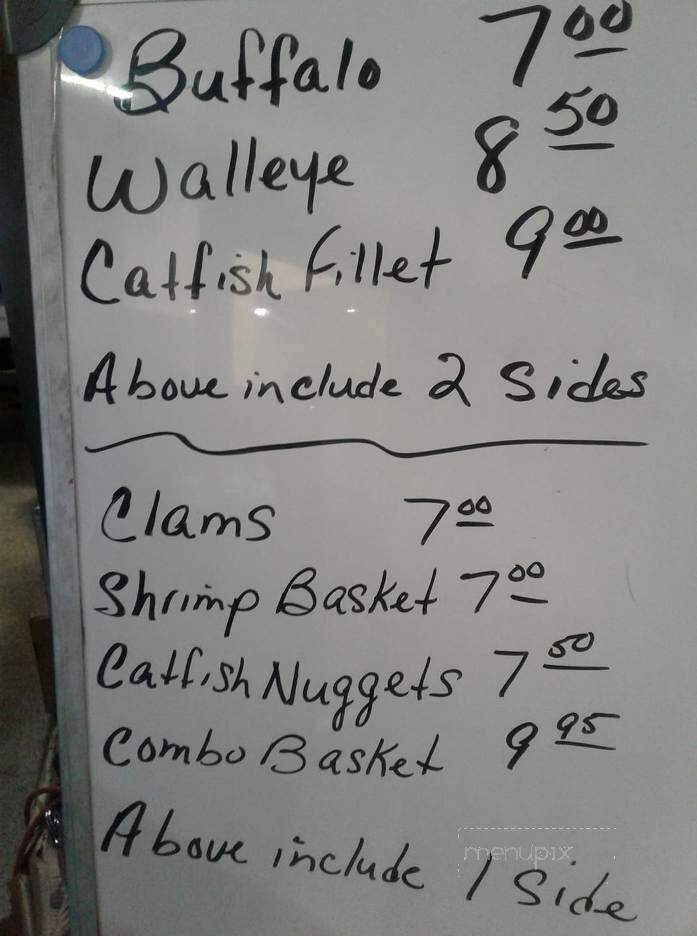 Buffalo 7 00
Walleye 8 50
Catfish Fillet 9 00
Above include 2 Sides
Clams 7 00
Shrimp Basket 7 00
Catfish Nuggets 7 50
Combo Basket 9 95
Above include 1 Side
menupix